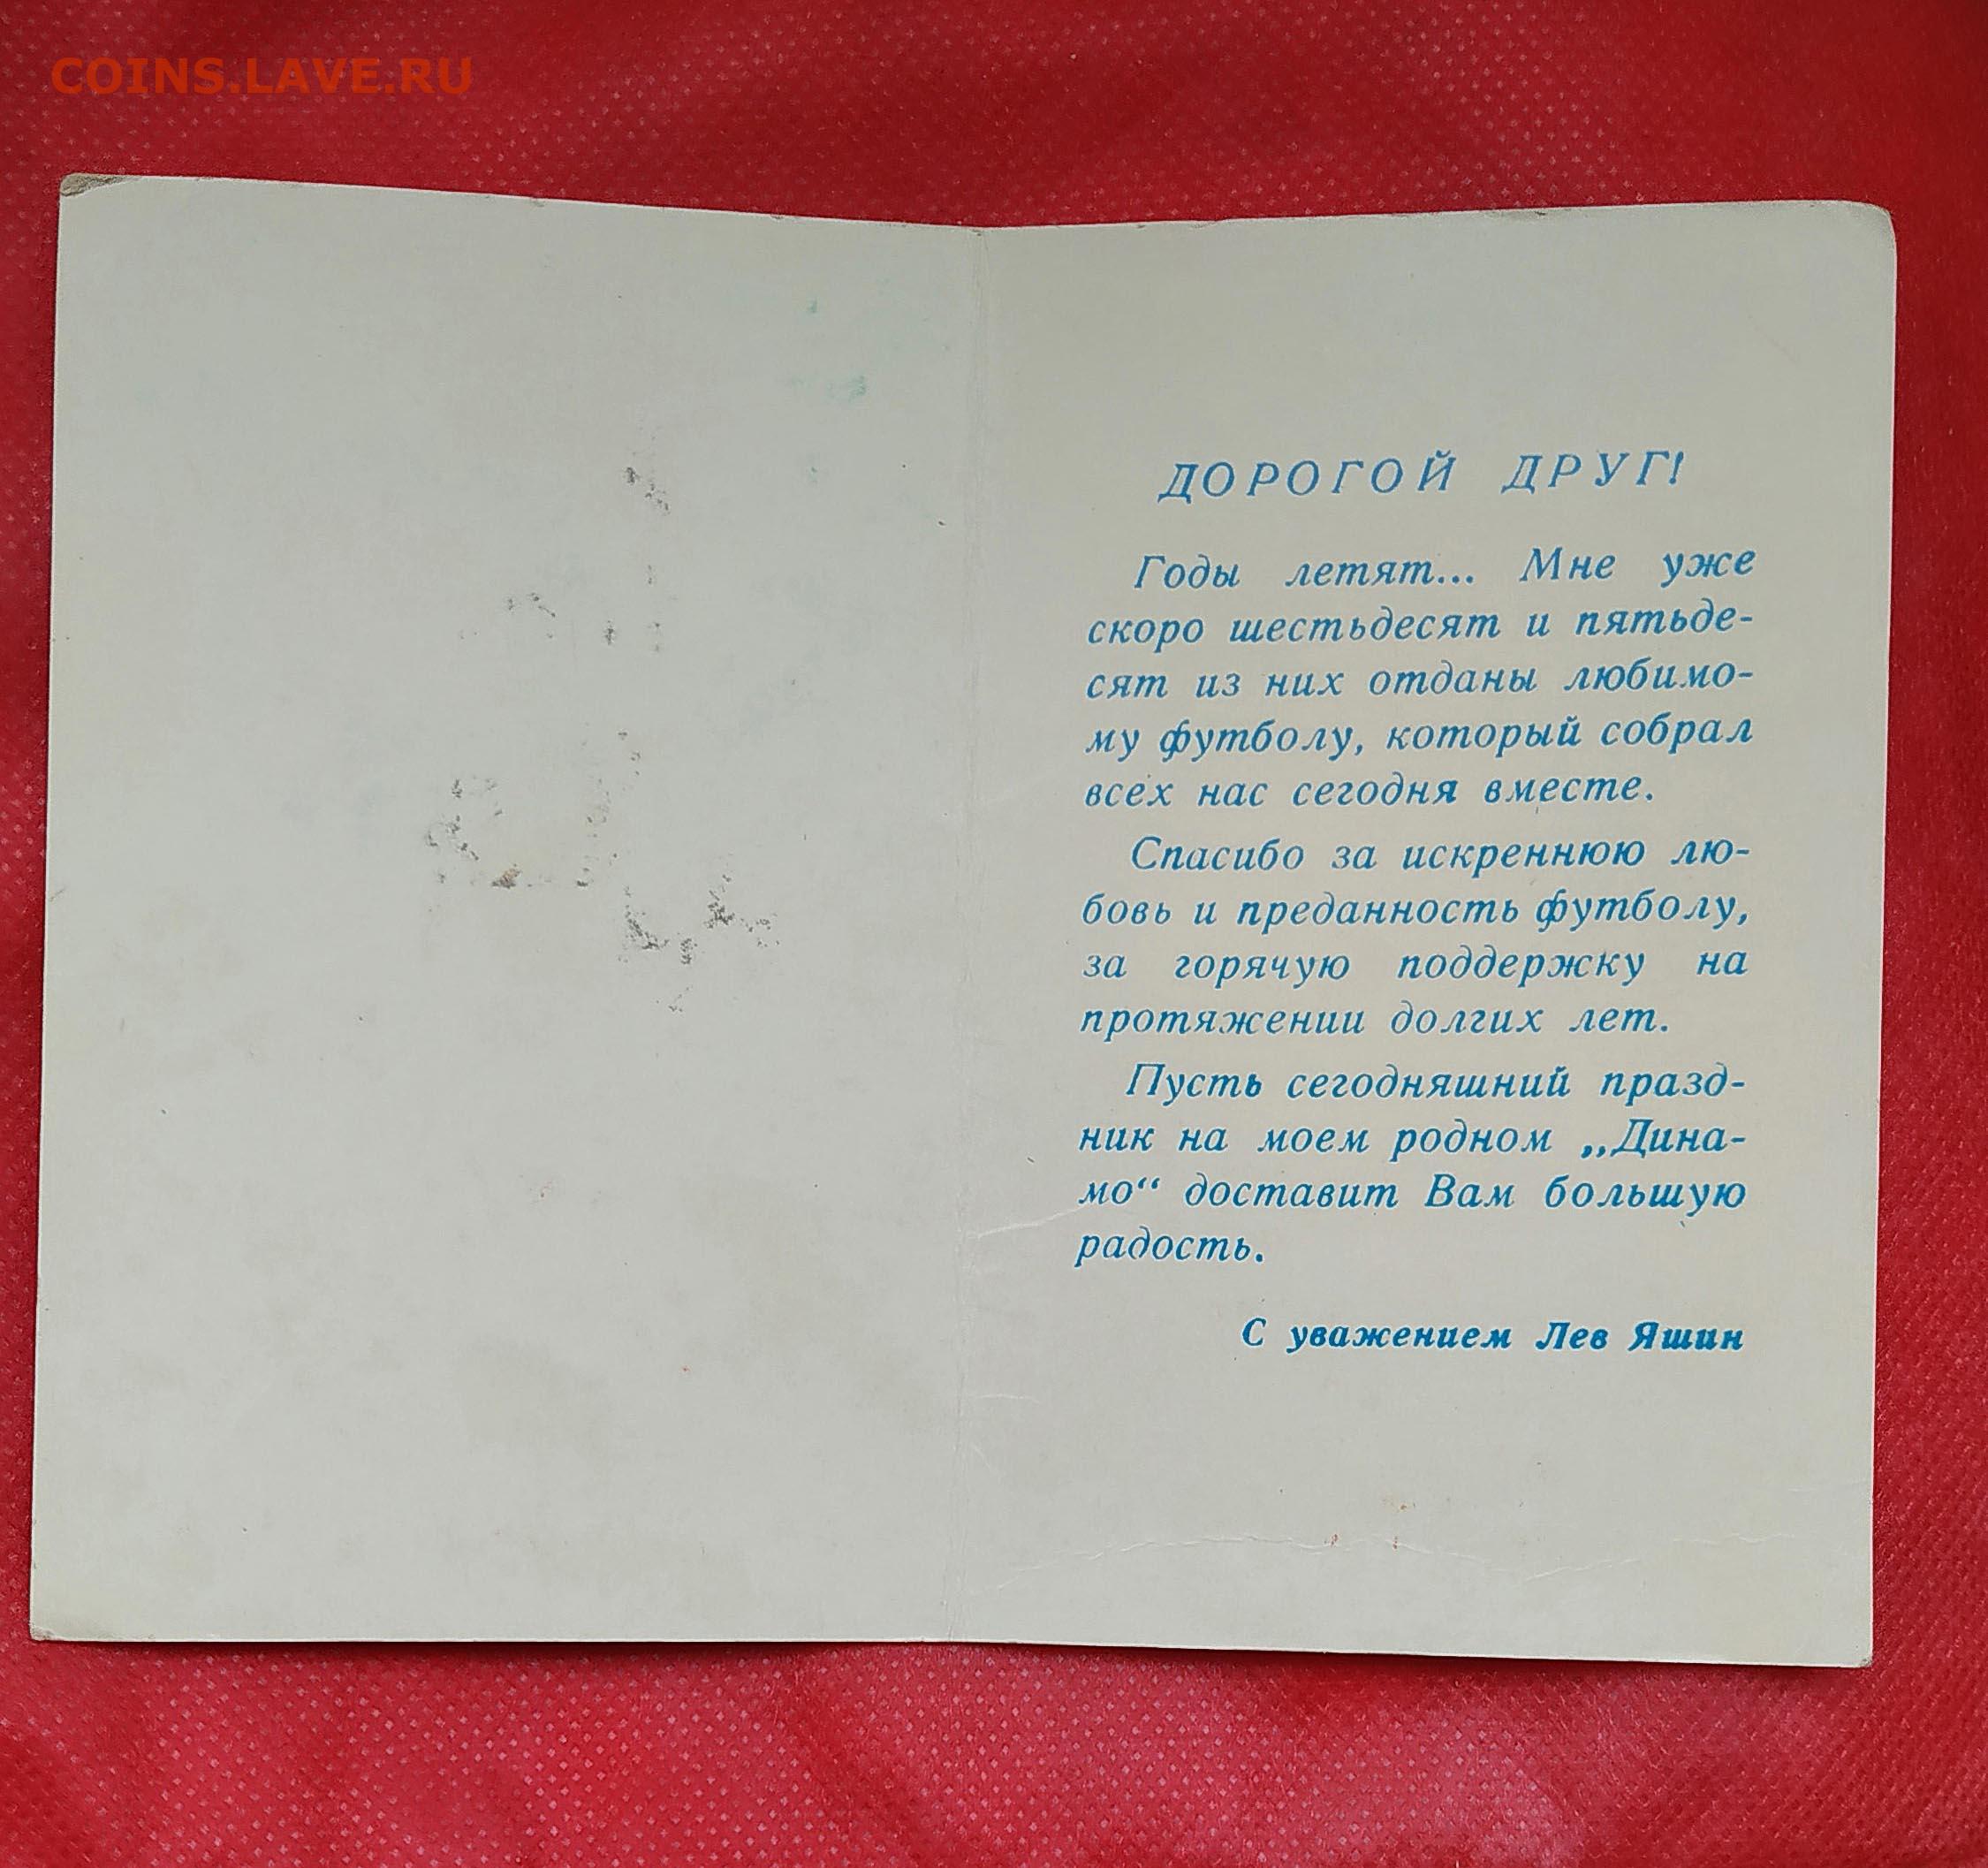 COINS.LAVE.RU
ДОРОГОЙ ДРУГ!
Годы летят... Мне уже
скоро шестьдесят и пятьде-
сят из них отданы любимо-
му футболу, который собрал
всех нас сегодня вместе.
Спасибо за искреннюю лю-
бовь и преданность футболу,
за горячую поддержку на
протяжении долгих лет.
Пусть сегодняшний празд-
ник на моем родном „Дина-
мо“ доставит Вам большую
радость.
С уважением Лев Яшин